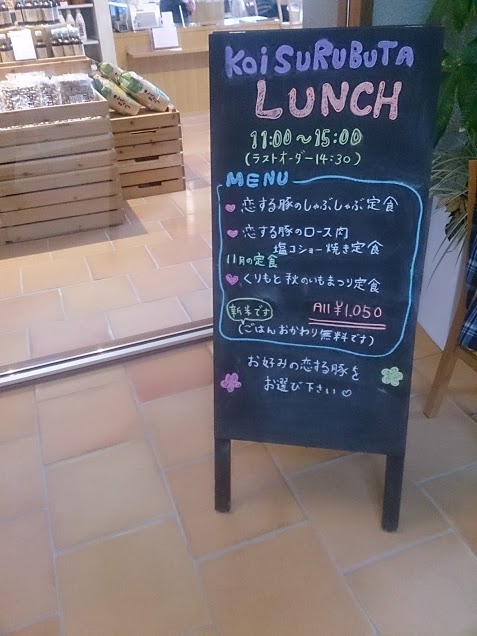 Koi SURUBUTA
LUNCH
11:00〜15:00
(ラストオーダー14:30)
MENU
恋する豚のしゃぶしゃぶ定食
恋する豚のロース肉
塩コショー焼き定食
11月の定食
くりもと 秋のいもまつり定食
新米です
All ¥1.050
(ごはんおかわり無料です)
お好みの恋する豚を
お選び下さい